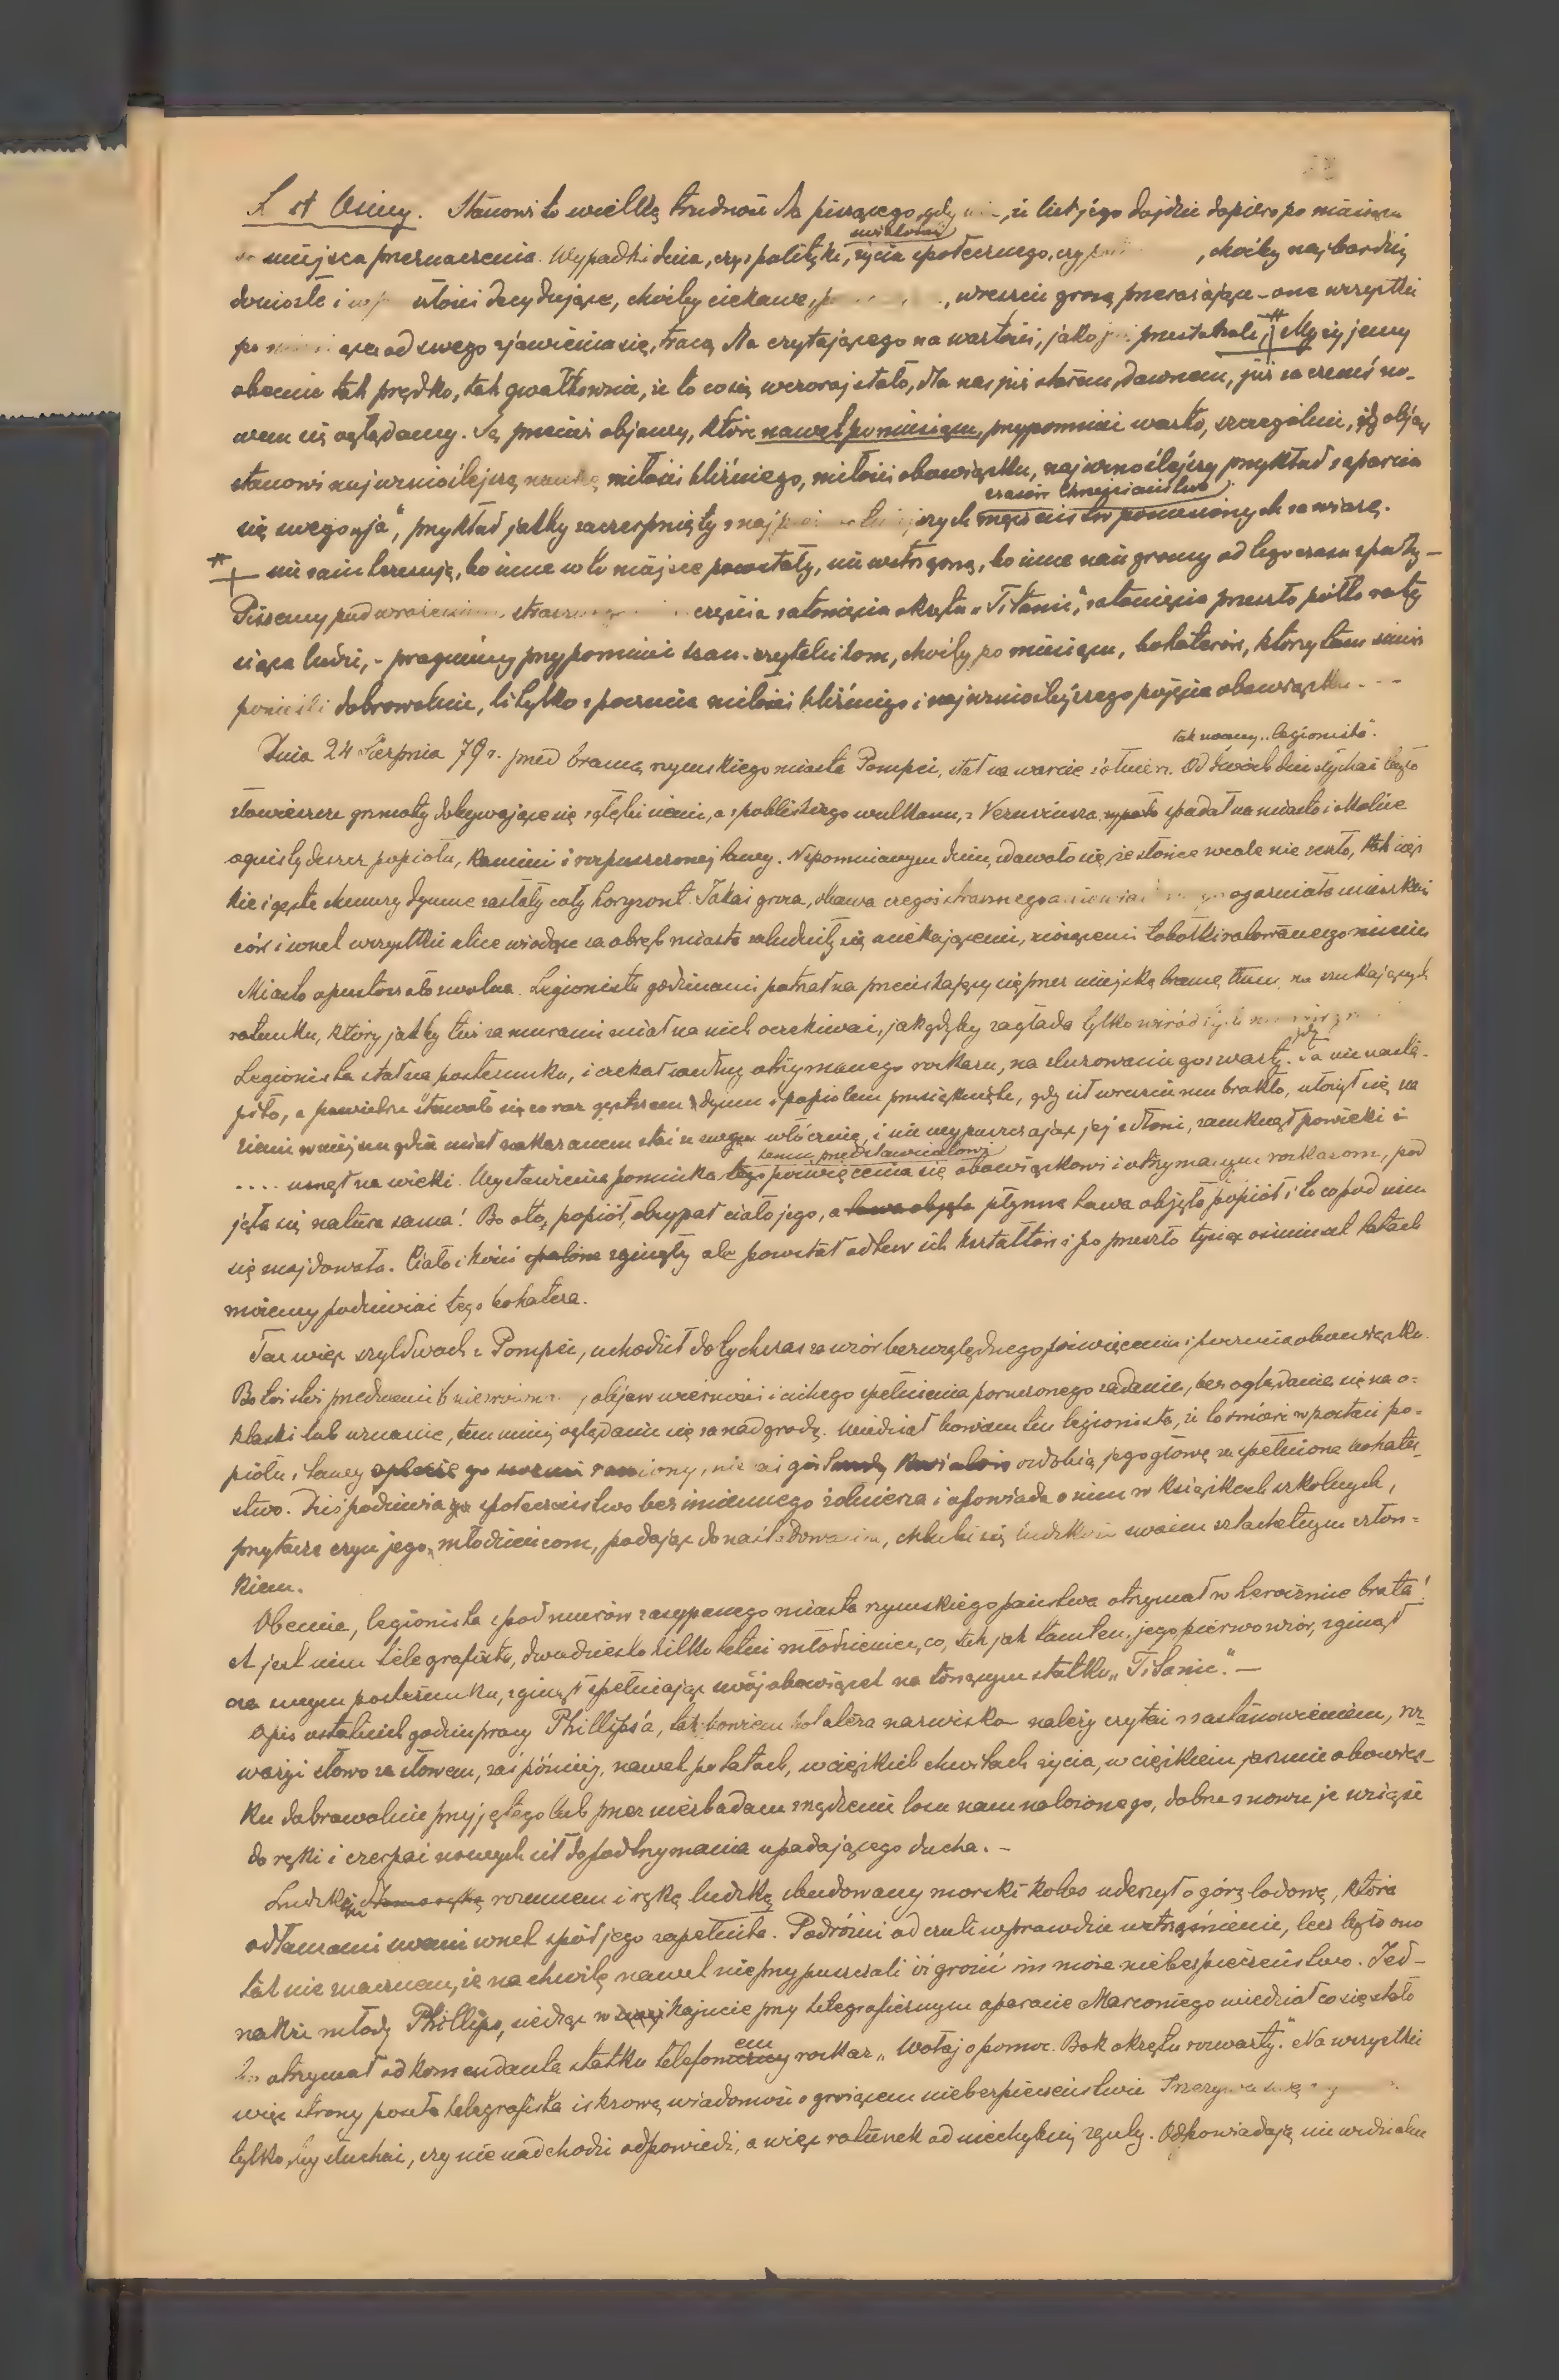 Stanowi to wielką trudność dla piszącego, gdy wie, iż list jego dojdzie dopiero po miesiącu
miejsca przeznaczenia. Wypadki dnia, czy z polityki, życia społecznego, czy, choćby najbardziej
doniosłe i decydujące, choćby ciekawe, wreszcie grozą przerażające – one wszystkie
od swego zjawienia się, tracą dla czytającego na wartości, jako przestarzałe, # My żyjemy
obecnie tak prędko, tak gwałtownie, iż to co się wczoraj stało, dla nas już starem, dawnem, już za czemś no-
wem się oglądamy. Są przecież objawy, które nawet po miesiącu, przypomnieć warto, szczególnie, gdy objaw
stanowi najwznioślejszą naukę miłości bliźniego, miłości obowiązku, najwznioślejszy przykład zaparcia
czasów Chrześcijaństwa
się swego „ja", przykład jakby zaczerpnięty z męczeństw ponoszonych za wiarę.
# nie zainteresują, bo inne w to miejsce powstały, nie wstrząsną, bo inne nań gromy od tego czasu spadły –
Piszemy pod wrażeniem zatonięcia okrętu „Titanic", zatonięcia przeszło półtora ty
siąca ludzi, – pragniemy przypomnieć szan. czytelnikom, choćby po miesiącu, bohaterów, którzy tam śmierć
ponieśli dobrowolnie, li tylko z poczucia miłości bliźniego i najwznioślejszego pojęcia obowiązku. – –
tak zwany „legionista".
Dnia 24 Sierpnia 79 r. przed bramą rzymskiego miasta Pompei, stał na warcie żołnierz. Od dwóch dni słychać było
złowieszcze grzmoty dobywające się z głębi ziemi, a z pobliskiego wulkanu, z Vezuwiusza spadał na miasto i okolice
ognisty deszcz popiołu, kamieni i rozpuszczonej lawy. Wspomnianym dniu, zdawało się, że słońce wcale nie zeszło, tak cięż
kie i gęste chmury dymne zasłały cały horyzont. Jakaś groza, obawa czegoś strasznego ogarniała mieszkań
ców i wnet wszystkie ulice wiodące za obręb miasta zaludniły się uciekającymi, niosącemi tobołki ratowanego mienia
Miasto opustoszało zwolna. Legionista godzinami patrzał na przeciskający się przez miejską bramę tłum, na szukających
ratunku, który jakby tuż za murami miał na nich oczekiwać, jak gdyby zagłada tylko wśród tych
Legionista stał na posterunku, i czekał według otrzymanego rozkazu, na zluzowanie go z warty. Gdy ta nie nastą-
piło, a powietrze stawało się coraz gęstszem dymem i popiołem przesiąknięte, gdy sił wreszcie mu brakło, ułożył się na
ziemi w miejscu gdzie miał nakazanem stać ze swą włócznią, i nie wypuszczając jej z dłoni, zamknął powieki i
temu przedstawicielowi
.... usnął na wieki. Wystawienia pomnika tego poświęcenia się obowiązkowi i otrzymanym rozkazom, pod
jęła się natura sama! Bo oto, popiół, obsypał ciało jego, a lawa objęła płynna lawa objęła popiół i to co pod nim
się znajdowało. Ciało i kości spalone zginęły ale powstał odlew ich kształtów i po przeszło tysiąc osiemset latach
możemy podziwiać tego bohatera.
Ten więc szyldwach z Pompei, uchodził dotychczas za wzór bezwzględnego poświęcenia i poczucia obowiązku.
Bo toż stoi przed nami objaw wierności i cichego spełnienia poruczonego zadania, bez oglądania się na o-
klaski lub uznanie, tem mniej oglądania się za nadgrodą. Wiedział bowiem ten legionista, iż to śmierć w postaci po-
piołu i lawy ozdobią jego głowę za spełnione bohater-
stwo. Dziś podziwia go społeczeństwo bezimiennego żołnierza i opowiada o nim w książkach szkolnych,
przytacza czyn jego młodzieńcom, podając do naśladowania, chlubi się ludzkość swoim szlachetnym człon-
kiem.
Obecnie, legionista z pod murów zasypanego miasta rzymskiego państwa otrzymał w heroiźmie brata!
A jest nim telegrafista, dwudziesto kilku letni młodzieniec, co, tak jak tamten, jego pierwowzór, zginął
na swym posterunku, zginął spełniając swój obowiązek na tonącym statku „Titanic". –
Opis ostatnich godzin pracy Phillips'a, tak bowiem bohatera nazwisko należy czytać z zastanowieniem, roz-
ważyć słowo za słowem, zaś później, nawet po latach, w ciężkich chwilach życia, w ciężkiem jarzmie obowiąz-
ku dobrowolnie przyjętego lub przez niezbadane zrządzenie losu nam nałożonego, dobrze znowu je wziąść
do ręki i czerpać nowych sił do podtrzymania upadającego ducha. –
Ludzkim rozumem i ręką ludzką zbudowany morski kolos uderzył o górę lodową, która
odłamami swemi wnet spód jego zapełniła. Podróżni odczuli wprawdzie wstrząśnienie, lecz było ono
tak nie znacznem, że na chwilę nawet nie przypuszczali iż grozić im może niebezpieczeństwo. Jed-
nakże młody Phillips, siedząc w kajucie przy telegraficznym aparacie Marconiego wiedział co się stało
em
bo otrzymał od komendanta statku telefoniczny rozkaz „Wołaj o pomoc. Bok okrętu rozwarty". Na wszystkie
więc strony posyła telegrafista iskrową wiadomość o grożącem niebezpieczeństwie
tylko by słuchać, czy nie nadchodzi odpowiedź, a więc ratunek od niechybnej zguby. Odpowiadają niewidzialne